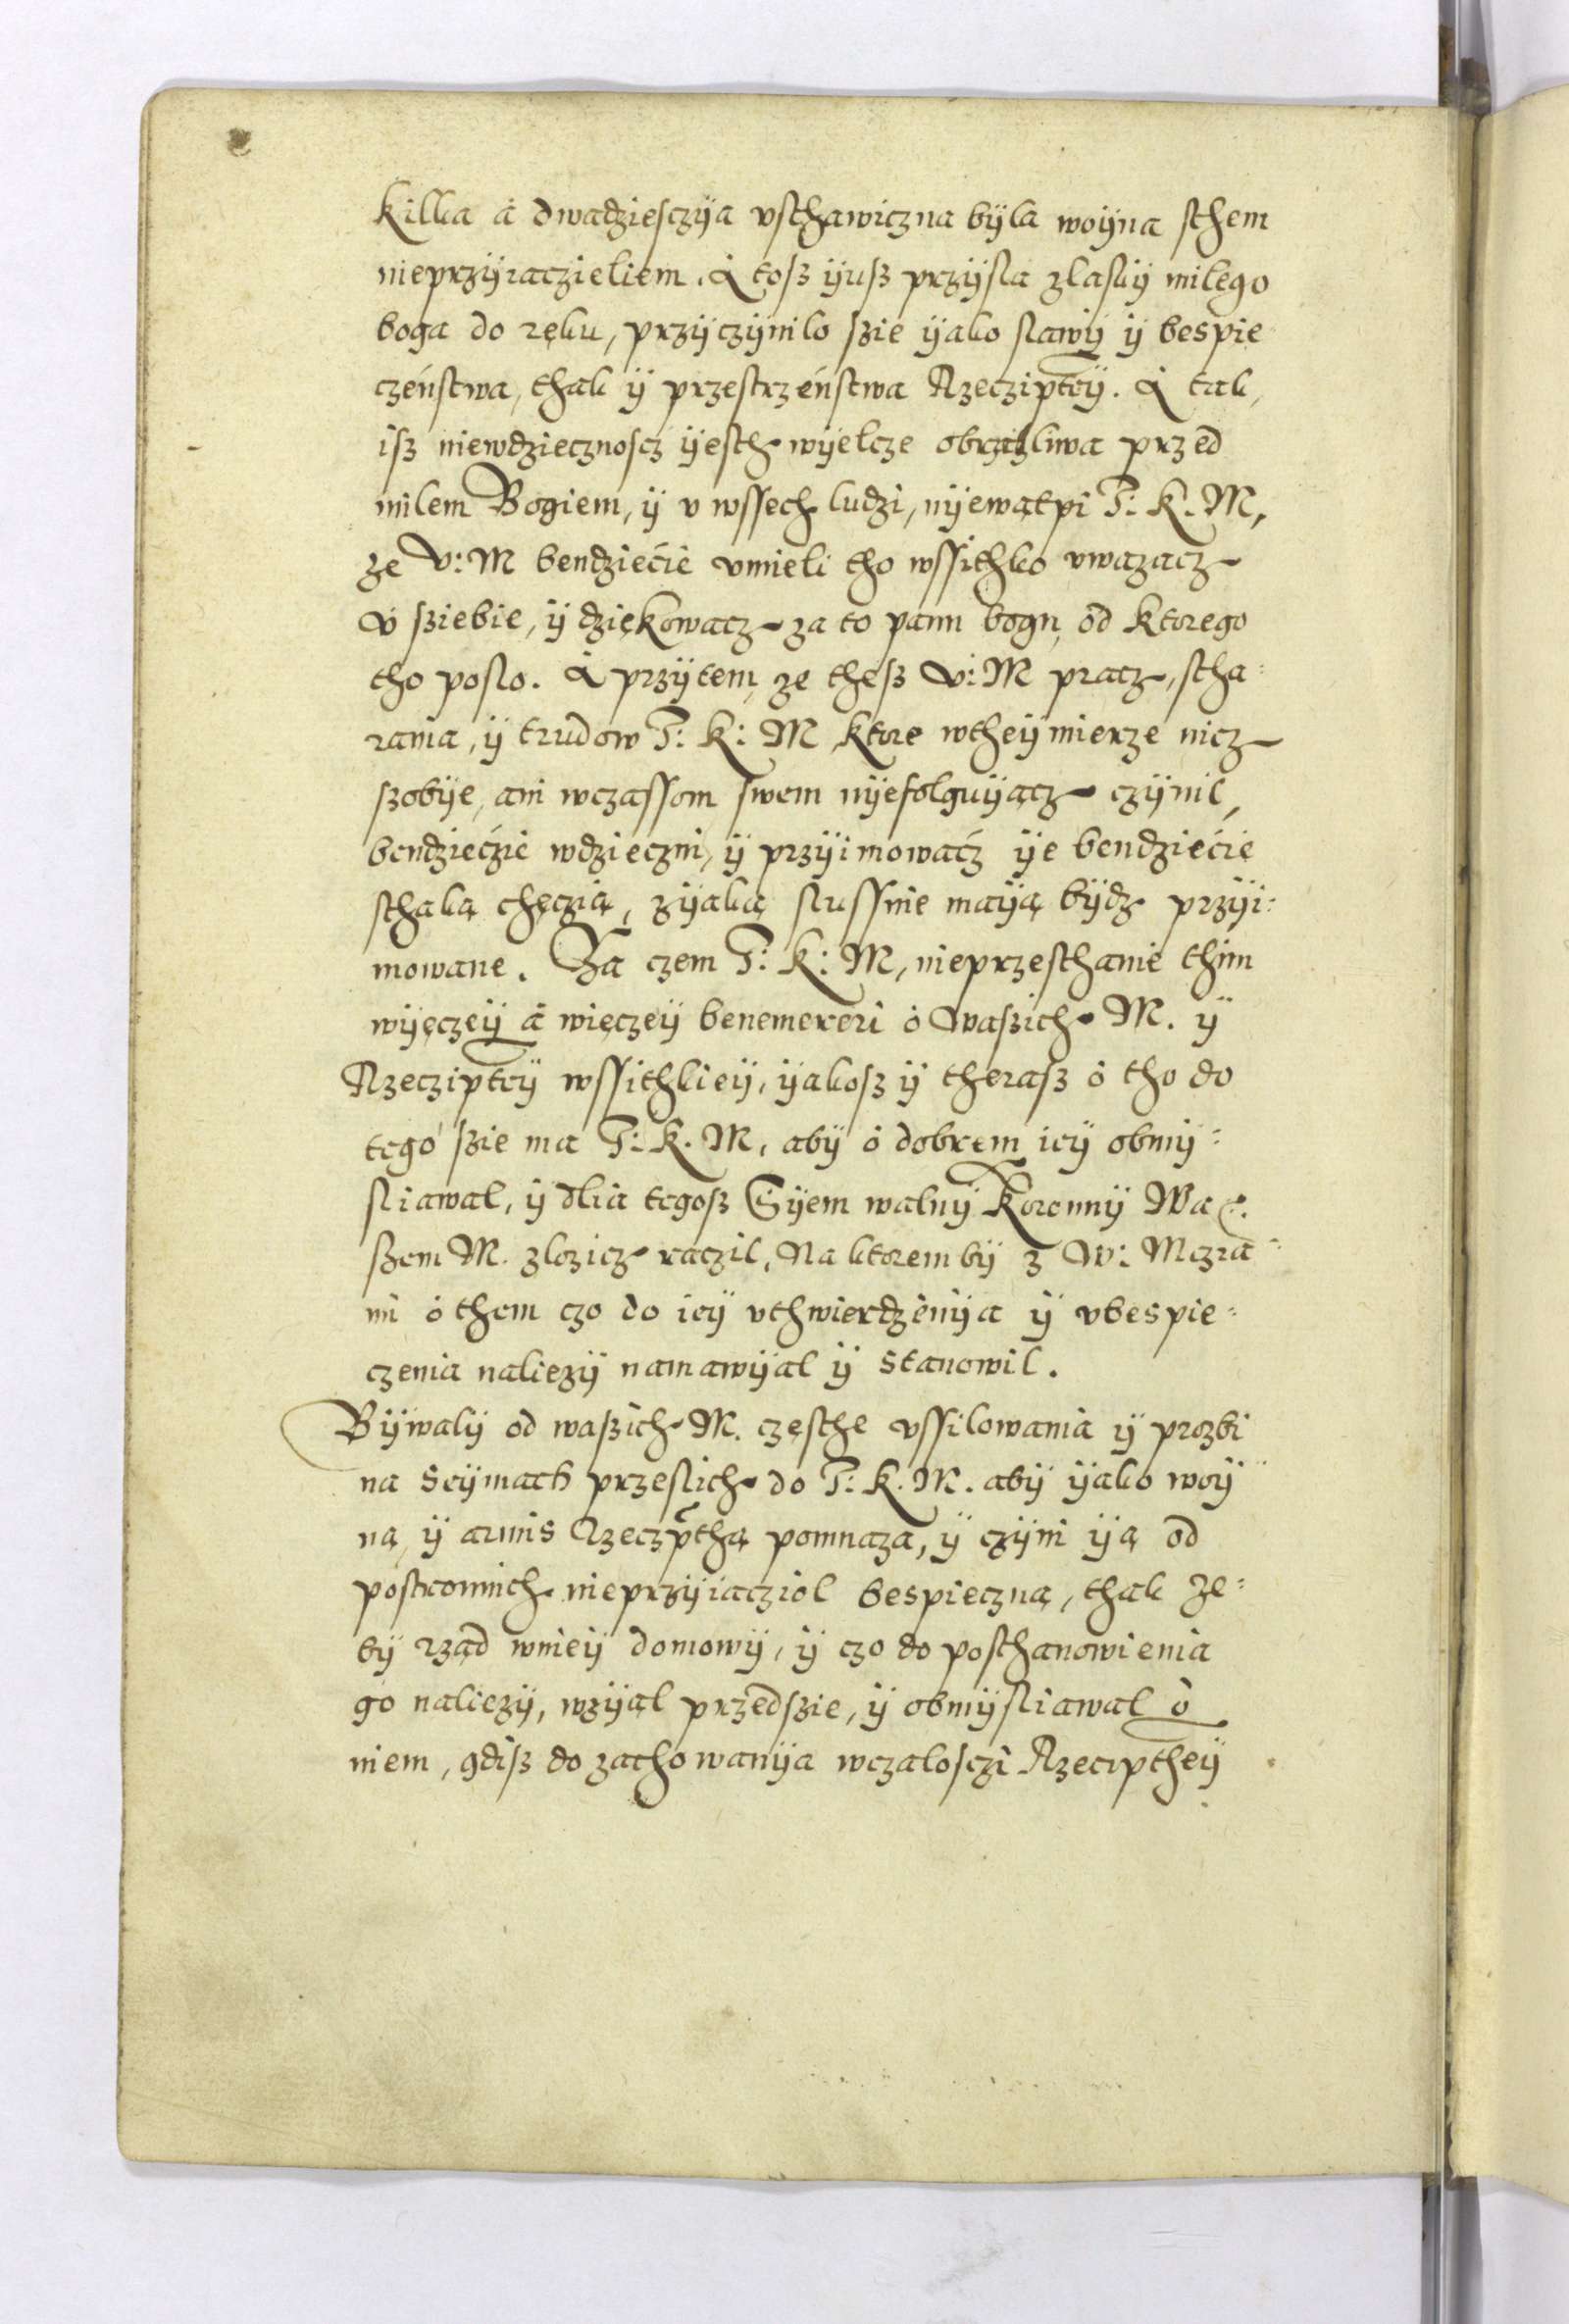 Killka á dwadziesczÿa vsthawiczna bÿla woÿna sthem
nieprzÿiaczieliem. A toß ÿuß przÿsla zlaskÿ milego
boga do ręku, przÿczÿnilo ßie ÿako slawÿ ÿ bespie
czeństwa, thak ÿ przestrzeństwa Rzecziptÿ. A tak,
iß niewdziecznoscz ÿesth wÿelcze obrzidliwa przed
milem Bogiem, ÿ v wssech ludzi, nÿewątpi J: K. M,
ze V: M bendziecie vmieli tho wssithko vwazacz
v ßiebie, ÿ dziękowacz za to panu bogu, od ktorego
tho poslo. A przÿtem ze theß V: M pracz, stha:
rania, ÿ trudow J: K: M ktore wtheÿ mierze nicz
ßobÿe, ani wczassom swem nÿefolguÿącz czÿnil,
bendzieczie wdzieczni, ÿ przÿimowacz ÿe bendziecie
sthaką chęczią, zÿaką slussnie maÿą bÿdz przÿi:
mowane. Za czem J: K: M, nieprzesthanie thim
wÿęczeÿ á więczeÿ benemereri o Waßich M. ÿ
Rzecziptÿ wssithkieÿ, ÿakoß ÿ theraß o tho do
tego ßie ma J: K. M, abÿ o dobrem ieÿ obmÿ:
sliawal, ÿ dlia tegoß Sÿem walnÿ Koronnÿ Wa:
ßem M. zlozicz raczil, Na ktorem bÿ z W: Mczia:
mi o them czo do ieÿ vthwierdzenÿa ÿ vbespie:
czenia naliezÿ namawÿal ÿ stanowil.
Bÿwalÿ od waßich M. częsthe vssilowania ÿ prozbi
na seÿmach przeslich do J: K. M. abÿ ÿako woÿ
ną, ÿ armis Rzeczpthą pomnaza, ÿ czÿni ÿą od
postronnich nieprzÿiacziol bespieczną, thak ze:
bÿ rząd wnieÿ domowÿ, ÿ czo do posthanowienia
go naliezÿ, wzÿąl przedßie, ÿ obmÿsliawal o
niem, gdiß do zachowanÿa wczalosczi Rzeciptheÿ